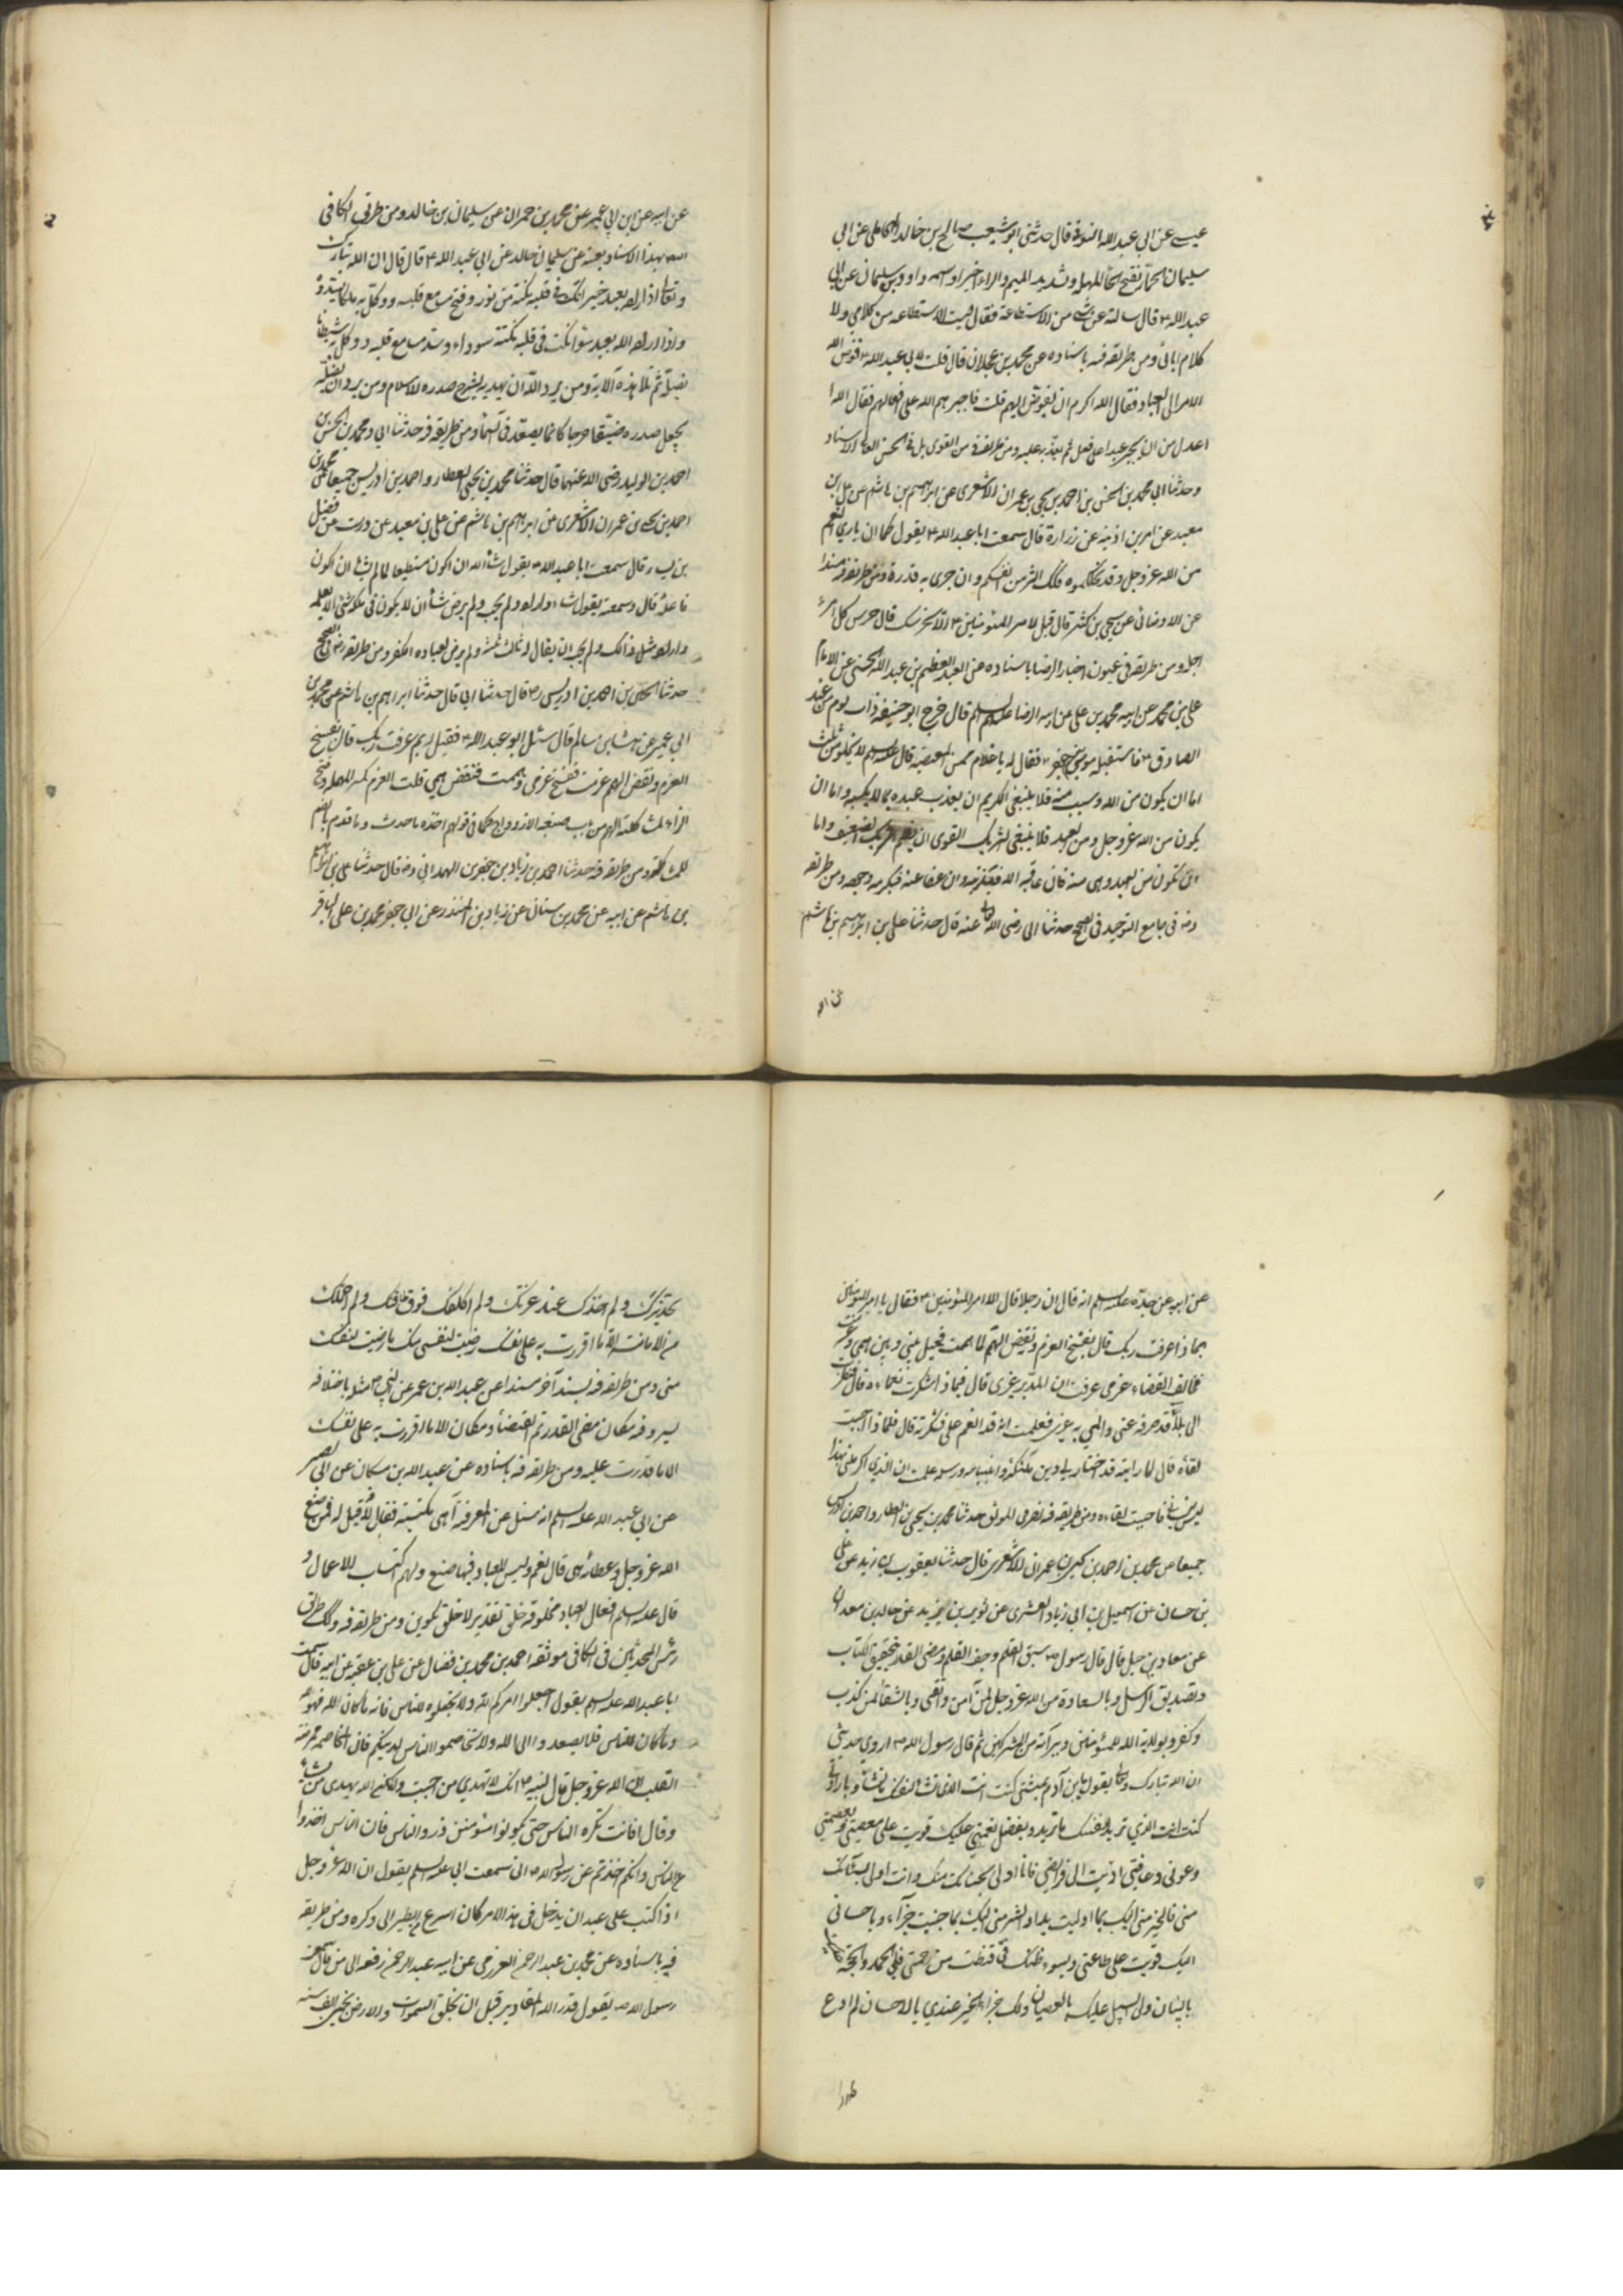 عيسى عن ابى عبد الله النوفة قال حدثنى ابو شعيب صالح بن خالد المحاملى عن ابى
سليمان الجمّار بفتح الحا المهملة وتشديد الميم والراء اخيرا واسمه داود بن سليمان عن ابى
عبد الله ع قال سالته عن شى من الاستطاعة فقال ليست الاستطاعة من كلامى ولا
كلام ابائى ومن طريقه فيه باسناده عن محمد بن عجلان قال قلت لابى عبد الله ع فوّض الله
الامر الى العباد فقال الله اكرم ان يفوض اليهم قلت فاجبرهم الله على افعالهم فقال الله
اعدل من ان يجبر عبدا على فعل ثم يعذّبه عليه ومن طريقه فى القوى بل فى الحسن العالى الاسناد
وحدثنا ابى محمد بن الحسن بن احمد بن يحيى بن عمران الاشعرى عن ابراهيم بن هاشم عن على بن
معبد عن ابن اذينه عن زرارة قال سمعت ابا عبد الله ع يقول كما ان بادى النعم
من الله عز وجل وقد نحلكموه فكذلك الشر من انفسكم وان جرى به قدره ومن طريقه فيه مسندا
عن الاوضائى عن يحيى بن كثير قال قيل لامير المؤمنين ع الا نحرسك قال حرس كل امرء
اجله ومن طريقه فى عيون اخبار الرضا باسناده عن العبد العظيم بن عبد الله الحسنى عن الامام
على بن محمد عن ابيه محمد بن على عن ابيه الرضا عليهم السلم قال خرج ابو حنيفة ذات يوم من عند
الصادق ع فاستقبله موسى بن جعفر ع فقال له يا غلام ممن المعصية قال عليه السلم لا تخلو من ثلث
اما ان يكون من الله وليست منه فلا ينبغى للكريم ان يعذب عبده بما لا يكسبه واما ان
يكون من الله عز وجل ومن العبد فلا ينبغى لشريك القوى ان يظلم الشريك الضعيف واما
ان يكون من العبد وهى منه فان عاقبه الله فبذنبه وان عفا عنه فبكرمه وجوده ومن طريقه
رضه فى جامع التوحيد فى الصحيح حدثنا ابى رضى الله تعالى عنه قال حدثنا على بن ابراهيم بن هاشم
عن ابيه
عن ابيه عن ابن ابى عمير عن محمد بن حمران عن سليمان بن خالد ومن طريق الكافى
بهذا الاسناد بعينه عن سليمان بن خالد عن ابى عبد الله ع قال قال ان الله تبارك
وتعالى اذا اراد بعبد خيرا نكت فى قلبه نكتة من نور وفتح مسامع قلبه ووكل به ملكا يسدده
واذا اراد الله بعبد سوءا نكت فى قلبه نكتة سوداء وسدّ مسامع قلبه ووكل به شيطانا
يضلّه ثم تلا هذه الآية ومن يرد الله ان يهديه يشرح صدره للاسلام ومن يرد ان يضلّه
يجعل صدره ضيّقا حرجا كانما يصعّد فى السماء ومن طريقه فيه حدثنا ابى ومحمد بن الحسن بن
احمد بن الوليد رضى الله عنهما قال حدثنا محمد بن يحيى العطار واحمد بن ادريس جميعا عن محمد بن
احمد بن يحيى بن عمران الاشعرى عن ابراهيم بن هاشم عن على بن معبد عن درست عن فضيل
بن يسار قال سمعت ابا عبد الله ع يقول شاء الله ان اكون مستطيعا لما لم يشأ ان اكون
فاعله قال وسمعته يقول شاء واراد ولم يحب ولم يرض شاء ان لا يكون فى ملكه شئ الا بعلمه
واراد مثل ذلك ولم يحب ان يقال له ثالث ثلثه ولم يرض لعباده الكفر ومن طريقه رض فى الصحيح
حدثنا الحسين بن احمد بن ادريس ره قال حدثنا ابى قال حدثنا ابراهيم بن هاشم عن محمد بن
ابى عمير عن هشام بن سالم قال سئل ابو عبد الله ع فقيل له بم عرفت ربك قال بفسخ
العزم ونقض الهم عزمت ففسخ عزمى وهممت فنقض همى قلت العزم
بن هاشم عن ابيه عن محمد بن سنان عن زياد بن المنذر عن ابى جعفر محمد بن على الباقر
عن ابيه عن جدّه عليه السلم انه قال ان رجلا قال لامير المؤمنين ع فقال يا امير المؤمنين
بماذا عرفت ربك قال بفسخ العزم ونقض الهمّ لما هممت فحيل بينى وبين همى وعزمت
فخالف القضاء عزمى عرفت ان المدبّر غيرى قال فبماذا شكرت نعماءه قال نظرت
الى بلاء قد صرفه عنى وابلى به غيرى فعلمت انه قد انعم على فشكرته قال فلماذا احببت
لقاءه قال لما رايته قد اختار لى دين ملئكته وانبيائه ورسله علمت ان الذى اكرمنى بهذا
ليس ينسانى فاحببت لقاءه ومن طريقه فيه حدثنا محمد بن يحيى العطار واحمد بن ادريس
جميعا عن محمد بن احمد بن يحيى بن عمران الاشعرى قال حدثنا يعقوب بن يزيد عن على
بن حسان عن اسمعيل بن ابى زياد الشعيرى عن ثور بن يزيد عن خالد بن معدان
عن معاذ بن جبل قال قال رسول الله ص سبق العلم وجف القلم ومضى القدر بتحقيق الكتاب
وتصديق الرسل وبالسعادة من الله عز وجل لمن آمن واتقى وبالشقاء لمن كذب
وكفر وبولاية الله للمؤمنين وبراءته من المشركين ثم قال رسول الله ص اروى حديثى
ان الله تبارك وتعالى يقول يا بن آدم بمشيتى كنت انت الذى تشاء لنفسك ما تشاء وبارادتى
كنت انت الذى تريد لنفسك ما تريد وبفضل نعمتى عليك قويت على معصيتى وبعصمتى
وعونى وعافيتى ادّيت الى فرائضى فانا اولى بحسناتك منك وانت اولى بسيّئاتك
منى فالخير منى اليك بما اوليت بداء والشر منى اليك بما جنيت جزآء وباحسانى
اليك قويت على طاعتى وبسوء ظنك بى قنطت من رحمتى فلى الحمد والحجّة عليك
بالبيان ولى السبيل عليك بالعصيان ولك جزاء الخير عندى بالاحسان لم ادع
تحذيرك ولم اخذك عند عزتك ولم اكلفك فوق طاقتك ولم احملك
من الامانة الا ما اقررت به على نفسك رضيت لنفسى منك ما رضيت لنفسك
منى ومن طريقه فيه بسند آخر مسندا عن عبد الله بن عمر عن النبى ص مثله باختلاف
يسير وفيه مكان مضى القدر تم القضاء ومكان الا ما اقررت به على نفسك
الا ما قدرت عليه ومن طريقه فيه باسناده عن عبد الله بن مسكان عن ابى بصير
عن ابى عبد الله عليه السلم انه سئل عن المعرفة أهى مكتسبة فقال لا فقيل له فمن صنع
الله عز وجل وعطائه هى قال نعم وليس للعباد فيها صنع ولهم اكتساب الاعمال و
قال عليه السلم افعال العباد مخلوقة خلق تقدير لا خلق تكوين ومن طريقه فيه وكذلك طريق
رئيس المحدثين فى الكافى موثقه احمد بن محمد بن فضال عن على بن عقبة عن ابيه قال سمعت
ابا عبد الله عليه السلم يقول اجعلوا امركم لله ولا تجعلوه للناس فانه ما كان لله فهو لله
وما كان للناس فلا يصعد الى الله ولا تخاصموا الناس لدينكم فان المخاصمة ممرضة
للقلب ان الله عز وجل قال لنبيه ص انك لا تهدى من احببت ولكن الله يهدى من يشاء
وقال افانت تكره الناس حتى يكونوا مؤمنين ذروا الناس فان الناس اخذوا
عن الناس وانكم اخذتم عن رسول الله ص انى سمعت ابى عليه السلم يقول ان الله عز وجل
اذا كتب على عبد ان يدخل فى هذا الامر كان اسرع اليه من الطير الى وكره ومن طريقه
فيه باسناده عن محمد بن عبد الرحمن العزرمى عن ابيه عبد الرحمن رفعه الى من قال سمعت
رسول الله ص يقول قدر الله المقادير قبل ان يخلق السموات والارض بخمسين الف سنه